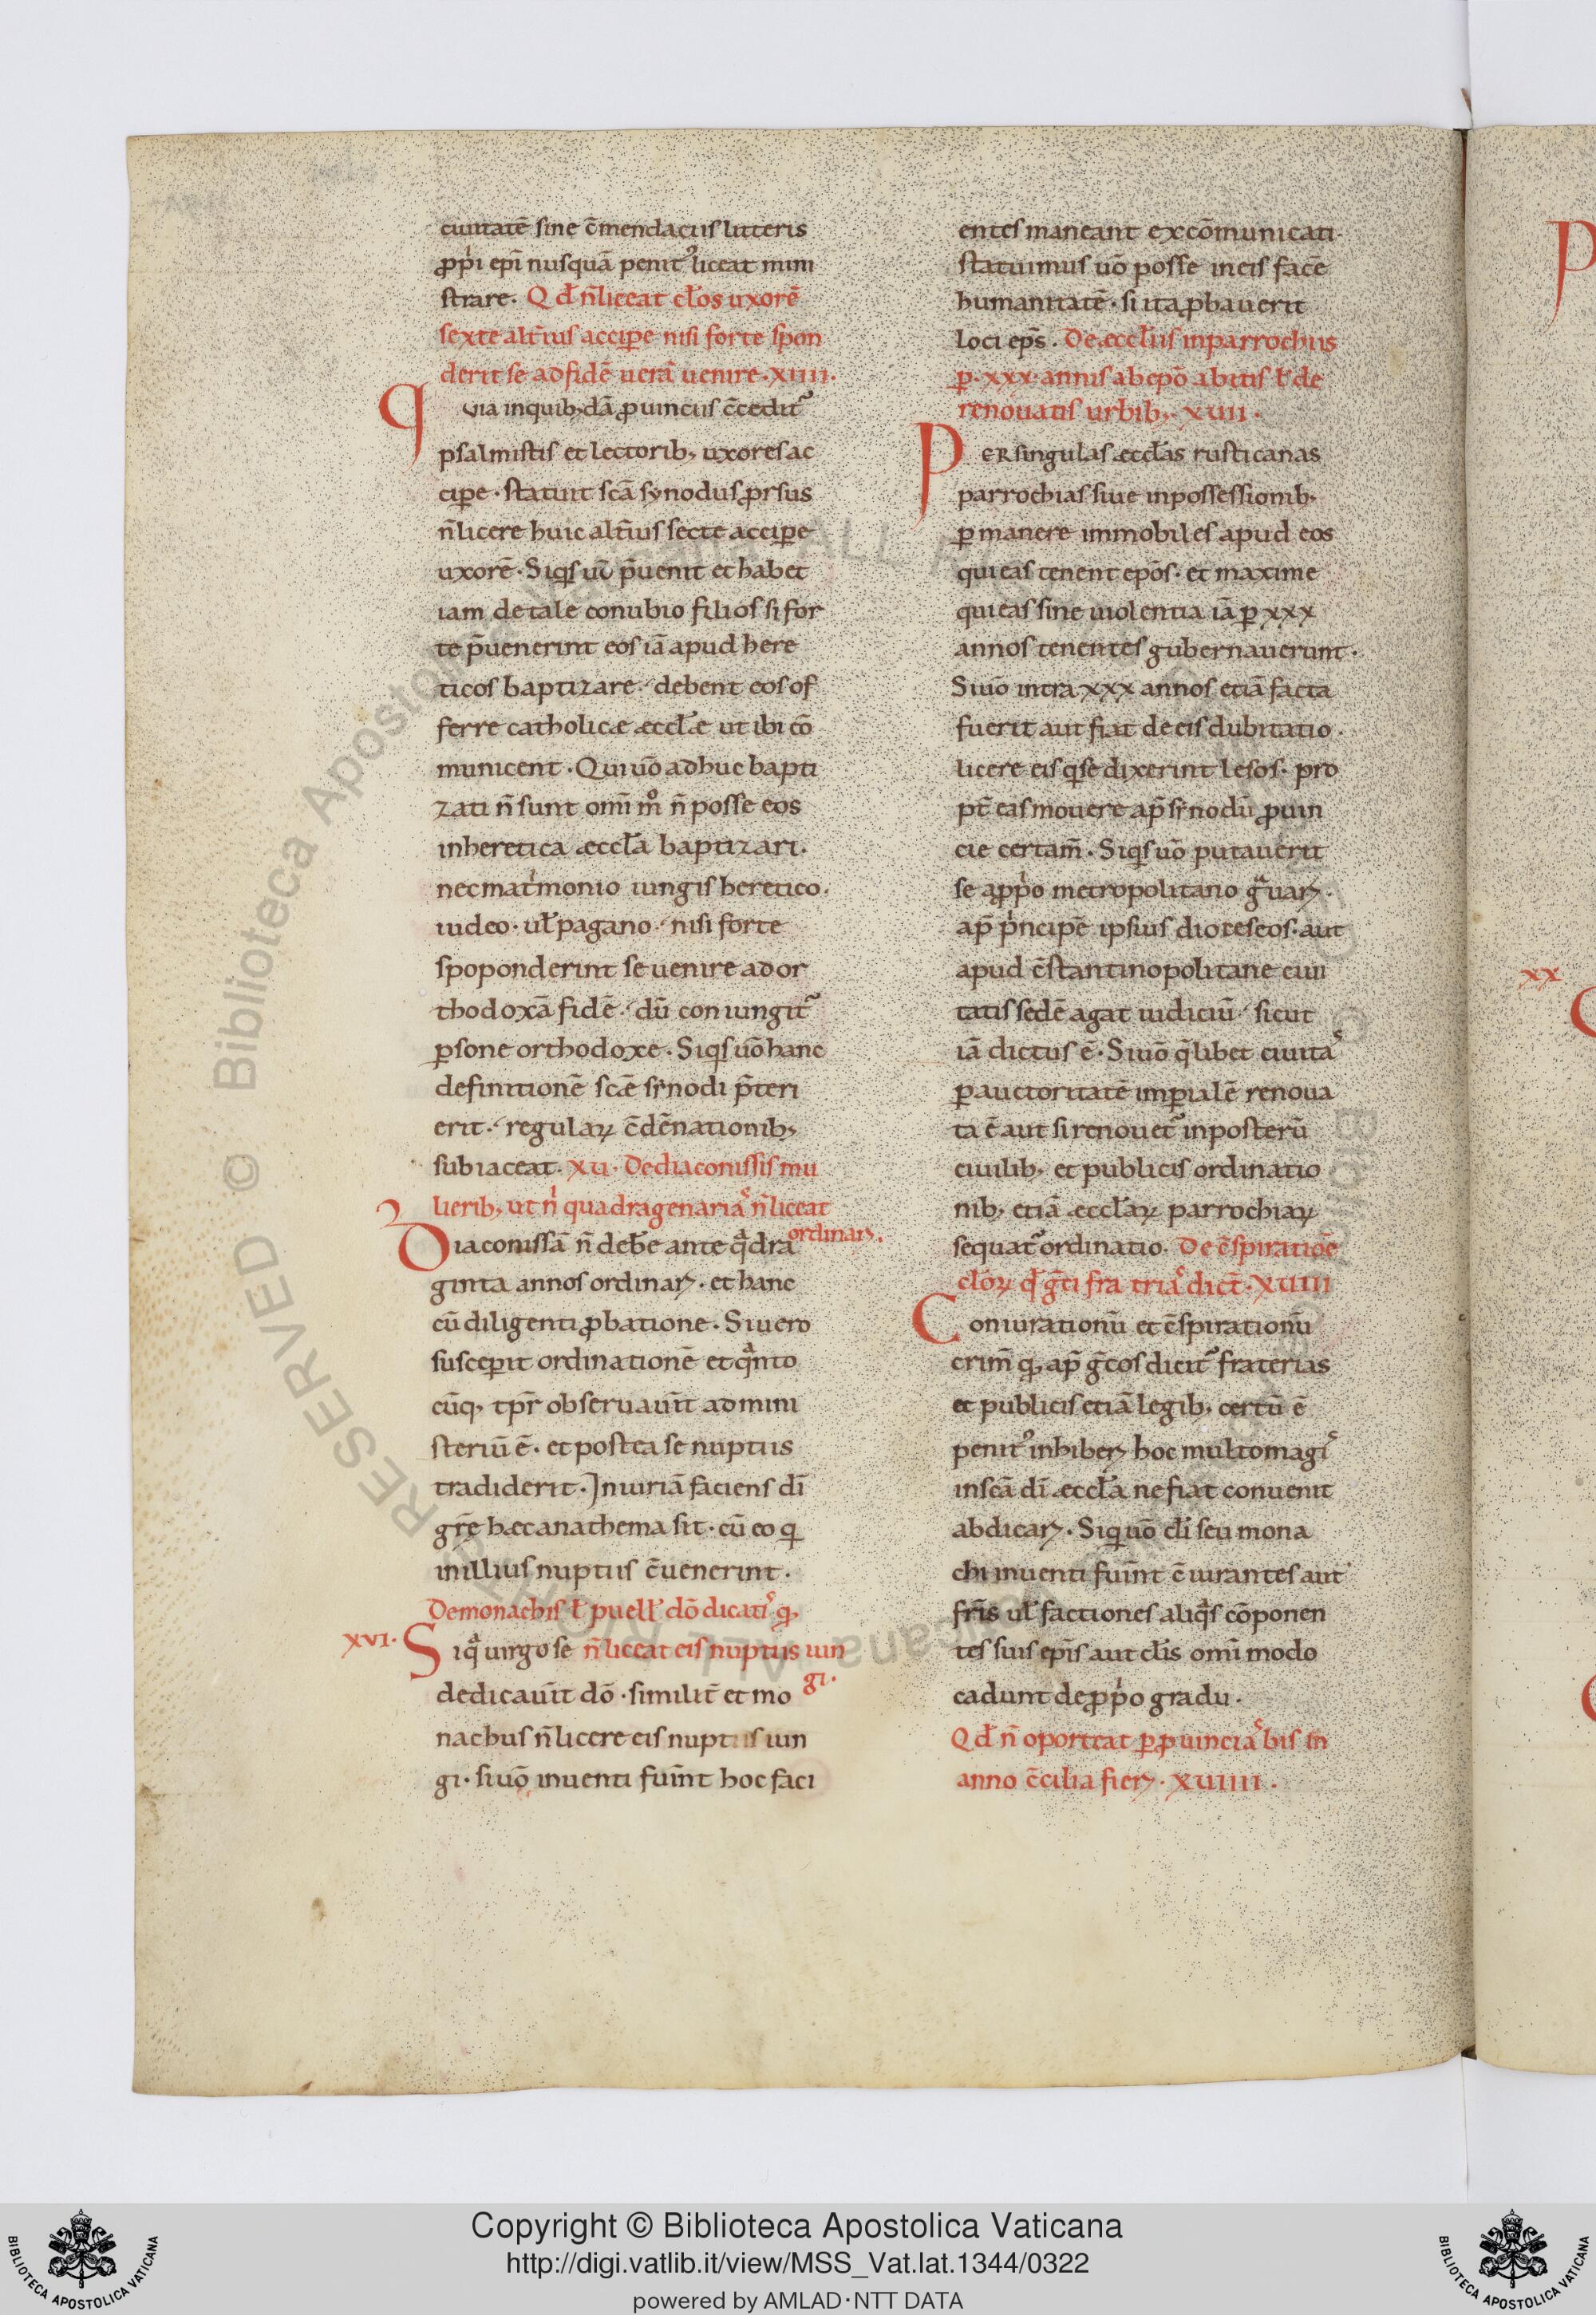 ciuitatē sine c̄mendaciis litteris
ꝓpı̍i epī nusquā penit᾽ liceat mini
strare. Qd̵ n̄ liceat cl̵os uxorē
sexte alt̄ius acciꝑe nisi forte spon
derit se ad fidē uerā uenire. XIIII.
Quia in quibꝫdā ꝓuinciis c̄cedit᷑
psalmistis et lectoribꝫ uxores ac
ciꝑe. statuit sc̄a synodus ꝓrsus
n̄ licere huic alt̄ius secte acciꝑe
uxorē. Siq̇s uō p̄uenit et habet
iam de tale conubio filios si for
te p̄uenerint eos iā apud here
ticos baptizare. debent eos of
ferre catholicæ æccl̵æ ut ibi cō
municent. Qui uō adhuc bapti
zati n̄ sunt omī m̊ n̄ posse eos
in heretica æccl̵a baptizari.
nec matı̍monio iungis heretico.
iudeo. ul̵ pagano. nisi forte
spoponderint se uenire ad or
thodoxā fidē. dū coniungit᷑
ꝑsone orthodoxe. Siq̇s uō hanc
definitionē sc̄e synodi p̄teri
erit. regulaꝝ c̄dēnationibꝫ
subiaceat. XU. De diaconissis mu
lieribꝫ ut n̄ quadragenarias n̄ liceat
ordinari.
Diaconissā n̄ deb̄e ante qͣdra
ginta annos ordinari. et hanc
cū diligenti ꝓbatione. Si uero
susceꝑit ordinationē et qͣnto
cūqꝫ tp̄r obseruaūit ad mini
steriū ē. et postea se nuptiis
tradiderit. Iniuriā faciens dī
gr̄e hæc anathema sit. cū eo q
in illius nuptiis c̄uenerint.
De monachis l̵ puell̵ dō dicatis qꝫ
XVI. Siqͣ uirgo se n̄ liceat eis nuptiis iun
gi.
dedicauīt dō. similit̄ et mo
nachus n̄ licere eis nuptiis iun
gi. si uō inuenti fuīnt hoc faci
entes maneant excōmunicati.
statuimus uō posse in eis facē
humanitatē. si ita ꝓbauerit
loci ep̄s. De æccl̵iis in parrochiis
ꝑ. XXX. annis ab epō abitis l̵ de
renouatis urbibꝫ. XUII.
PER singulas æccl̵as rusticanas
parrochias siue in possessionibꝫ
ꝑmanere immobiles apud eos
qui eas tenent epōs. et maxime
qui eas sine uiolentia iā ꝑ XXX
annos tenentes gubernauerunt.
Si uō intra XXX annos etiā facta
fuerit aut fiat de eis dubitatio.
licere eis q̇ se dixerint lesos. pro
pt̄ eas mouere ap̄ synodū ꝓuin
cie certam̄. Siq̇s uō putauerit
se a ꝓpı̍o metropolitano gͣuari.
ap̄ pı̍ncipē ipsius dioceseos. aut
apud c̄stantinopolitane ciui
tatis sedē agat iudiciū sicut
iā dictus ē. Si uō q̄libet ciuitas
ꝑ auctoritatē imꝑialē renoua
ta ē aut si renouet᷑ in posterū
ciuilibꝫ et publicis ordinatio
nibꝫ etiā æccl̵aꝝ parrochiaꝝ
sequat᷑ ordinatio. De c̄spiratiōe
cl̵oꝝ qd̵ ḡti fratrias dict̄. XUIII
Coniurationū et c̄spirationū
crim̄ qꝫ ap̄ ḡcos dicit᷑ fraterias
et publicis etiā legibꝫ certū ē
penit᾽ inhiberi hoc multo magis
in scā dī æccl̵a ne fiat conuenit
abdicari. Siqui uō cl̵i seu mona
chi inuenti fuīnt c̄iurantes aut
fr̄is ul̵ factiones aliqͣs cōponen
tes suis epīs aut cl̵is omī modo
cadunt de ꝓpı̍o gradu.
Qd̵ n̄ oporteat ꝑ ꝓuincias bis in
anno c̄cilia fieri. XUIIII.
P
XX
C
Copyright © Biblioteca Apostolica Vaticana
http://digi.vatlib.it/view/MSS_Vat.lat.1344/0322
powered by AMLAD·NTT DATA
BIBLIOTECA APOSTOLICA VATICANA
BIBLIOTECA APOSTOLICA VATICANA